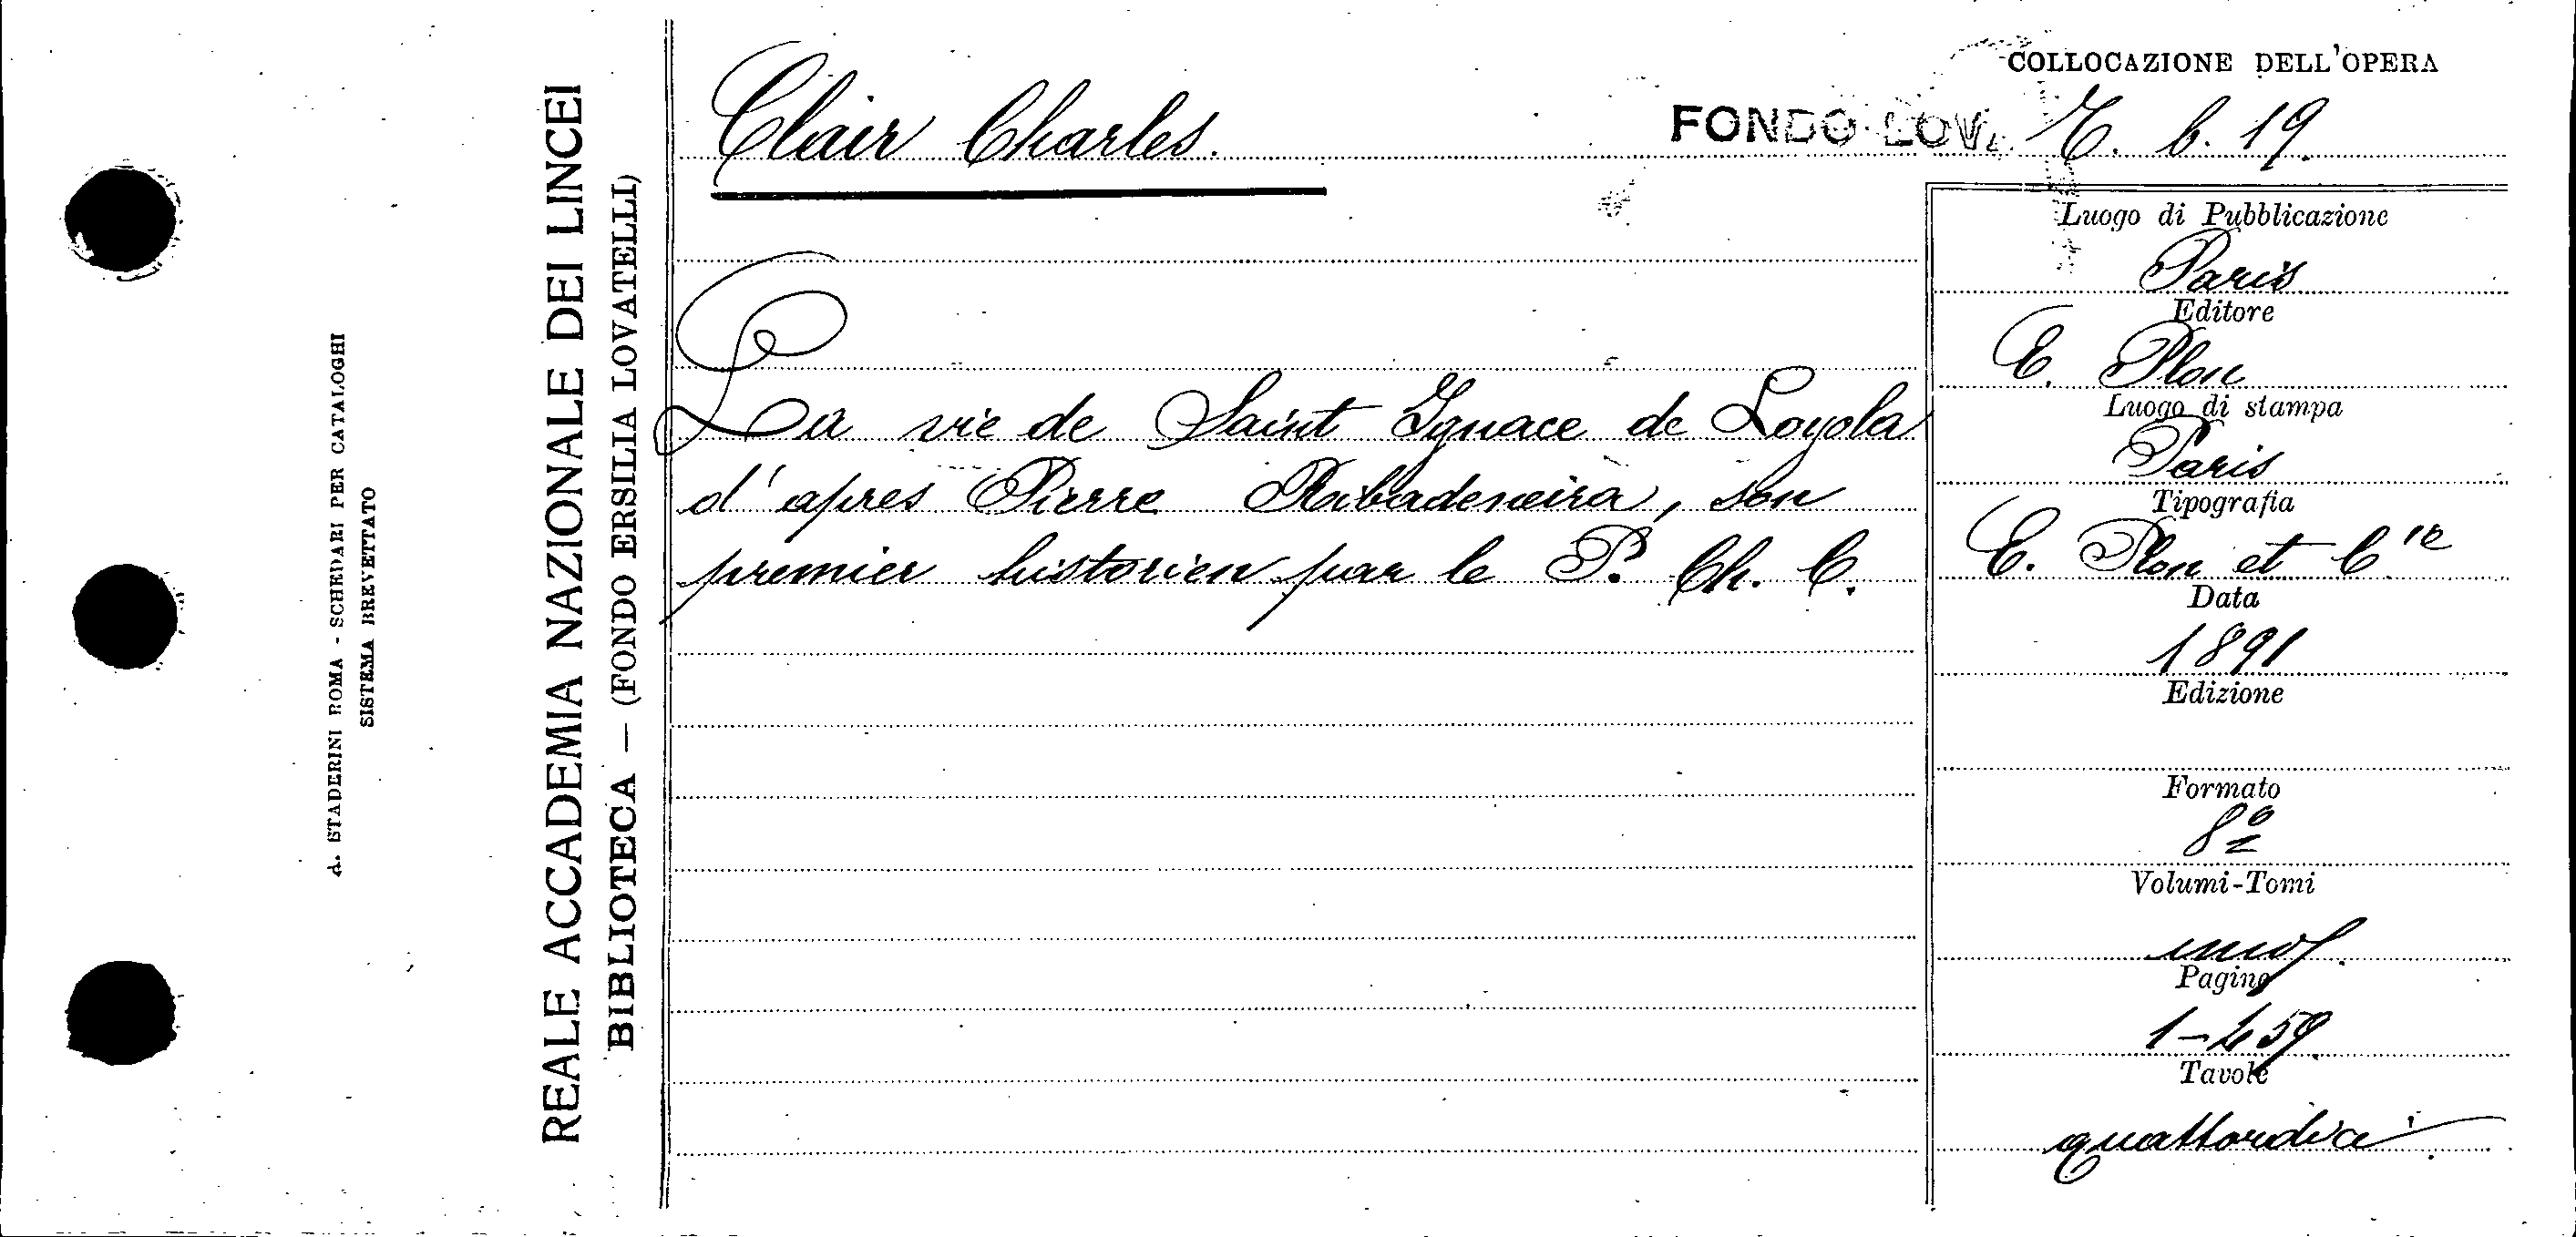 COLLOCAZIONE DELL'OPERA
Clair Charles.
FONDO LOV. E. b. 19.
La vie de Saint Ignace de Loyola
d'apres Pierre Ribadeneira, son
premier historien par le P. Ch. C.
Luogo di Pubblicazione
Paris
Editore
E. Plon
Luogo di stampa
Paris
Tipografia
E. Plon et C.ie
Data
1891
Edizione
Formato
8º
Volumi-Tomi
uno
Pagine
1-459
Tavole
quattordici
REALE ACCADEMIA NAZIONALE DEI LINCEI
BIBLIOTECA — (FONDO ERSILIA LOVATELLI)
d. STADERINI ROMA - SCHEDARI PER CATALOGHI
SISTEMA BREVETTATO